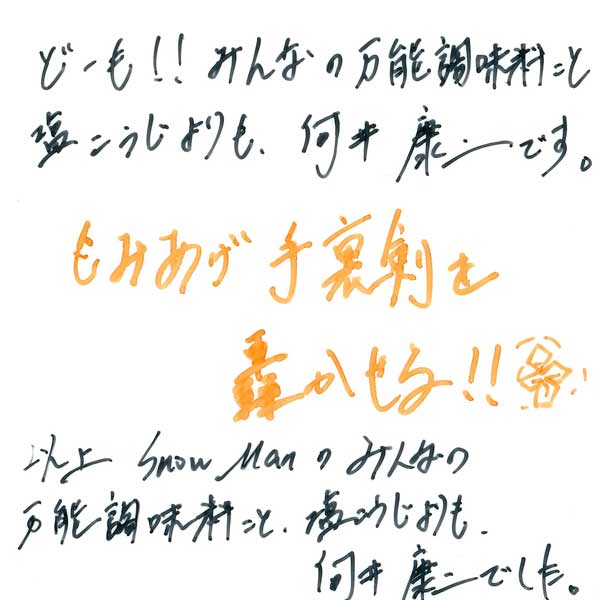 どーも!! みんなの万能調味料こと
塩こうじよりも、何井康二です。
もみあげ手裏剣を
轟かせる!!
以上 Snow Manのみんなの
万能調味料こと、塩こうじよりも、
何井康二でした。